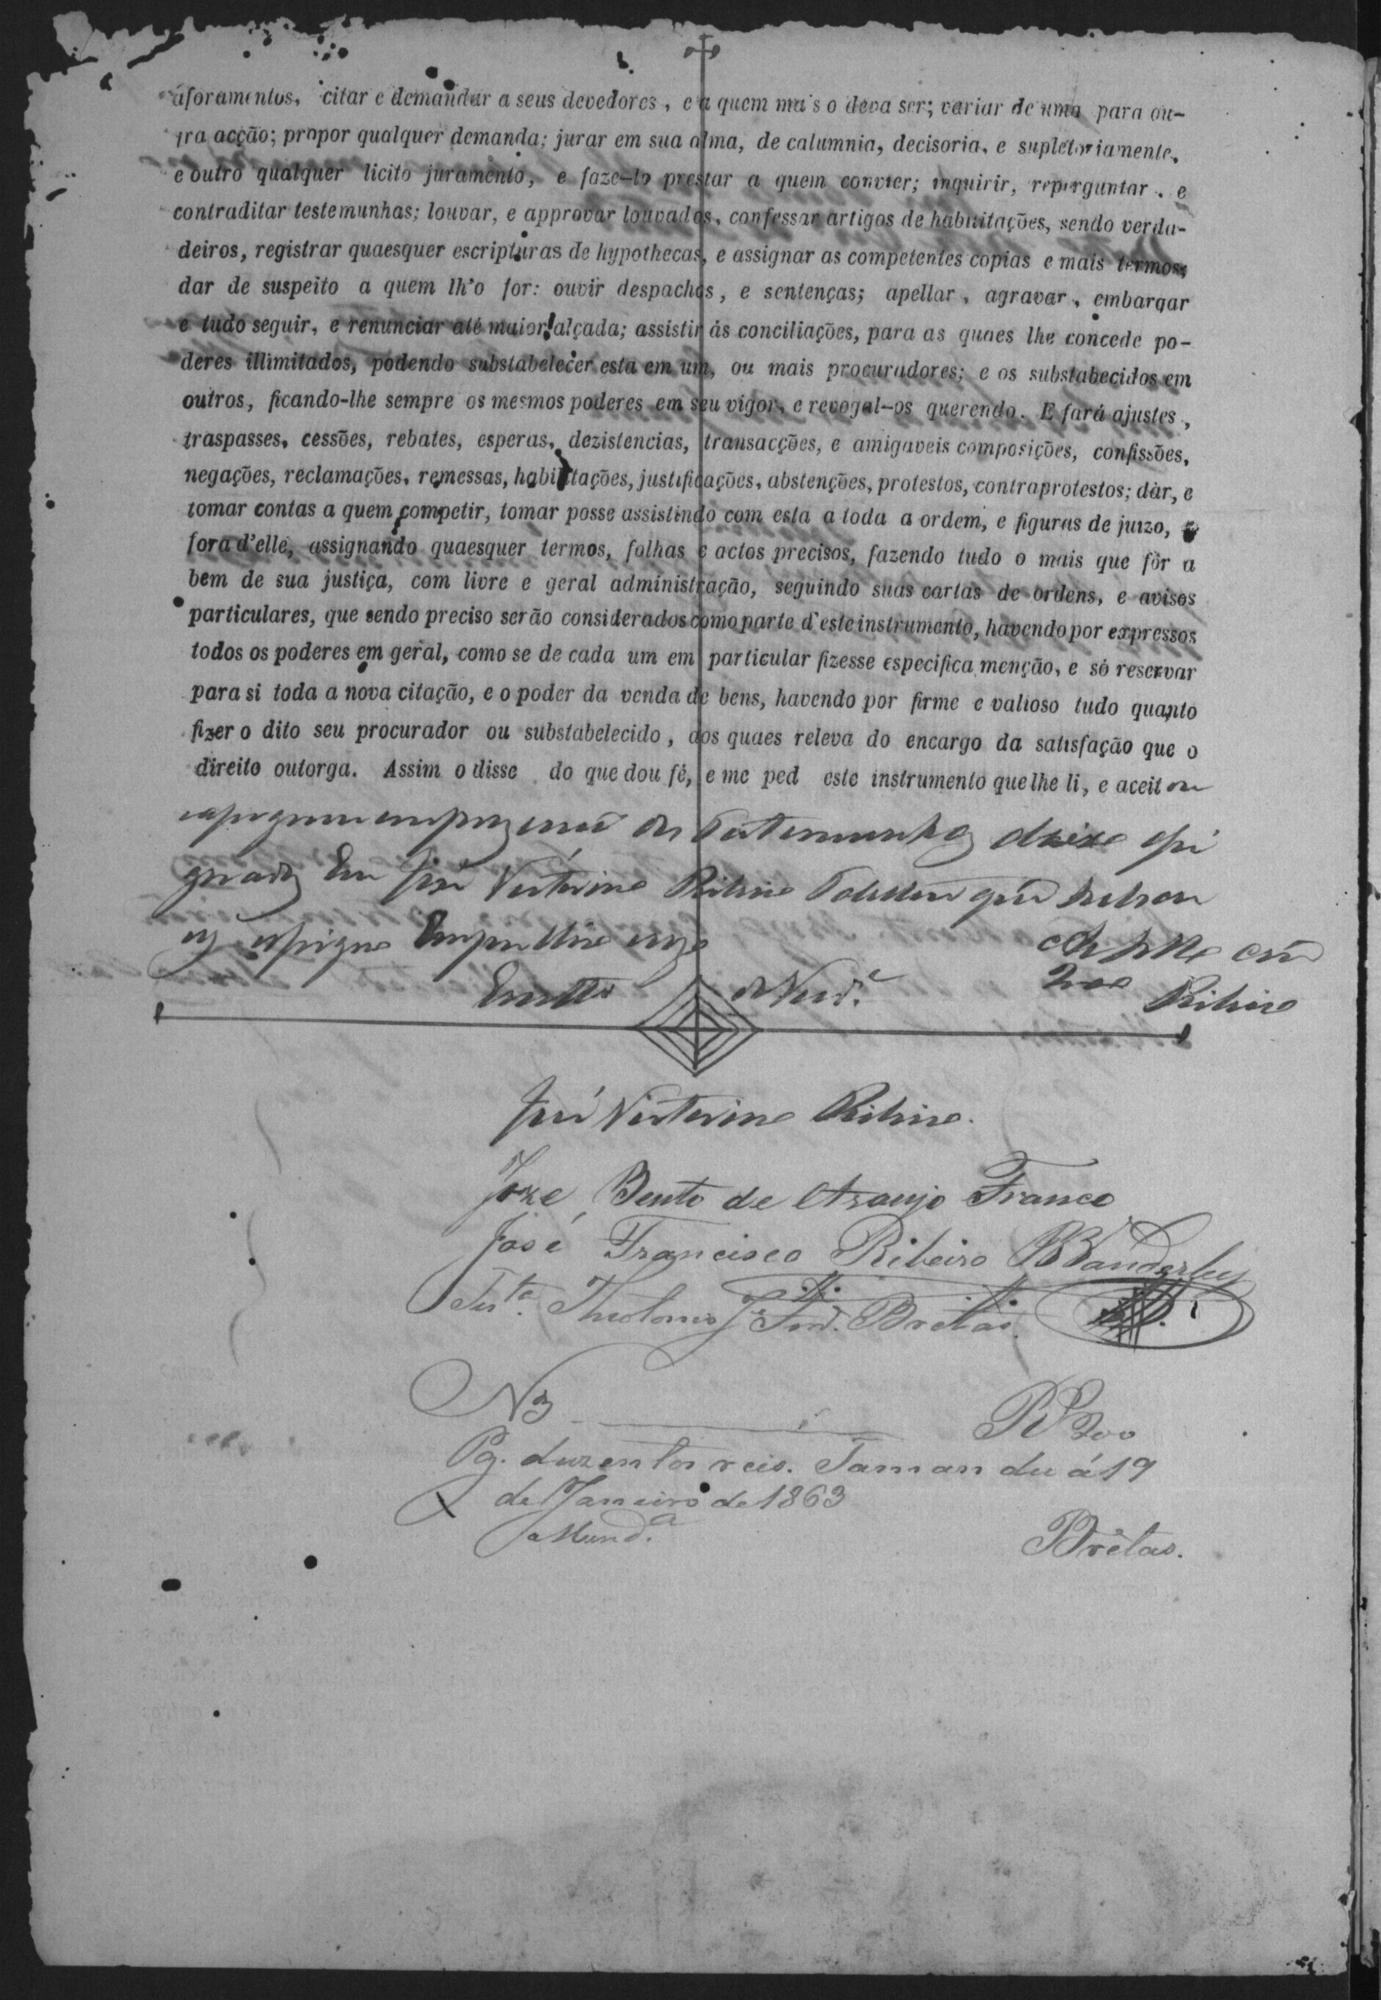 aforamentos, citar e demandar a seus devedores, e a quem mais o deva ser; variar de uma para ou-
tra acção; propor qualquer demanda; jurar em sua alma, de calumnia, decisoria, e supletoriamente,
e outro qualquer licito juramento, e faze-lo prestar a quem convier; inquirir, reperguntar, e
contraditar testemunhas; louvar, e approvar louvados, confessar artigos de habilitações, sendo verda-
deiros, registrar quaesquer escripturas de hypothecas, e assignar as competentes copias e mais termos;
dar de suspeito a quem lh'o for: ouvir despachos, e sentenças; apellar, agravar, embargar
e tudo seguir, e renunciar até maior alçada; assistir ás conciliações, para as quaes lhe concede po-
deres illimitados, podendo substabelecer esta em um, ou mais procuradores; e os substabecidos em
outros, ficando-lhe sempre os mesmos poderes em seu vigor, e revogal-os querendo. E fará ajustes,
traspasses, cessões, rebates, esperas, dezistencias, transacções, e amigaveis composições, confissões,
negações, reclamações, remessas, habilitações, justificações, abstenções, protestos, contraprotestos; dàr, e
tomar contas a quem competir, tomar posse assistindo com esta a toda a ordem, e figuras de juizo, e
fora d'elle, assignando quaesquer termos, folhas e actos precisos, fazendo tudo o mais que fôr a
bem de sua justiça, com livre e geral administração, seguindo suas cartas de ordens, e avisos
particulares, que sendo preciso serão considerados como parte d'este instrumento, havendo por expressos
todos os poderes em geral, como se de cada um em particular fizesse especifica menção, e só reservar
para si toda a nova citação, e o poder da venda de bens, havendo por firme e valioso tudo quanto
fizer o dito seu procurador ou substabelecido, aos quaes releva do encargo da satisfação que o
direito outorga. Assim o disse do que dou fé, e me ped este instrumento que lhe li, e aceitou
as Testemunhas abaixo assi
gnadas Eu José Victorino Ribeiro Tabellião que
assigno Em publico
Em tto de Verd.e
200 Ribeiro
José Victorino Ribeiro.
Joze Bento de Araujo Franco
José Francisco Ribeiro Wanderley
N 3 Rs 200
Pg. duzentos reis. Tamanduá 19
de Janeiro de 1863
Brêtas.